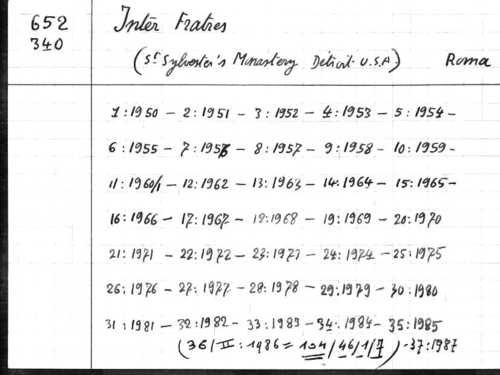 652
340
Inter Fratres
(St Sylvester's Monastery Détroit-U.S.A) Roma
1:1950 – 2:1951 – 3:1952 – 4:1953 – 5:1954 –
6:1955 – 7:1956 – 8:1957 – 9:1958 – 10:1959 –
11:1960/1 – 12:1962 – 13:1963 – 14:1964 – 15:1965 –
16:1966 – 17:1967 – 18:1968 – 19:1969 – 20:1970
21:1971 – 22:1972 – 23:1973 – 24:1974 – 25:1975
26:1976 – 27:1977 – 28:1978 – 29:1979 – 30:1980
31:1981 – 32:1982 – 33:1983 – 34:1984 – 35:1985
(36/II:1986 = 104/46/1/7) - 37:1987